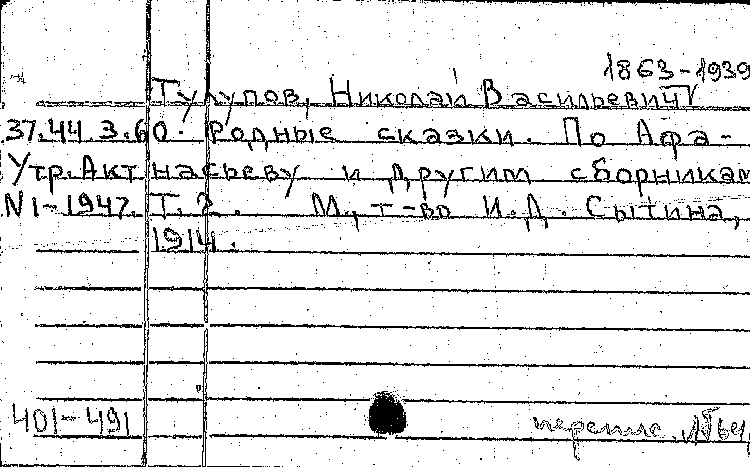 1863-1939
Тулупов, Николай Васильевич
37.44.3.60. Родные сказки. По Афа-
Утр. Акт насьеву и другим сборникам
N 1-1947. Т. 2. М., т-во И.Д. Сытина,
1914.
401-491 перепис.